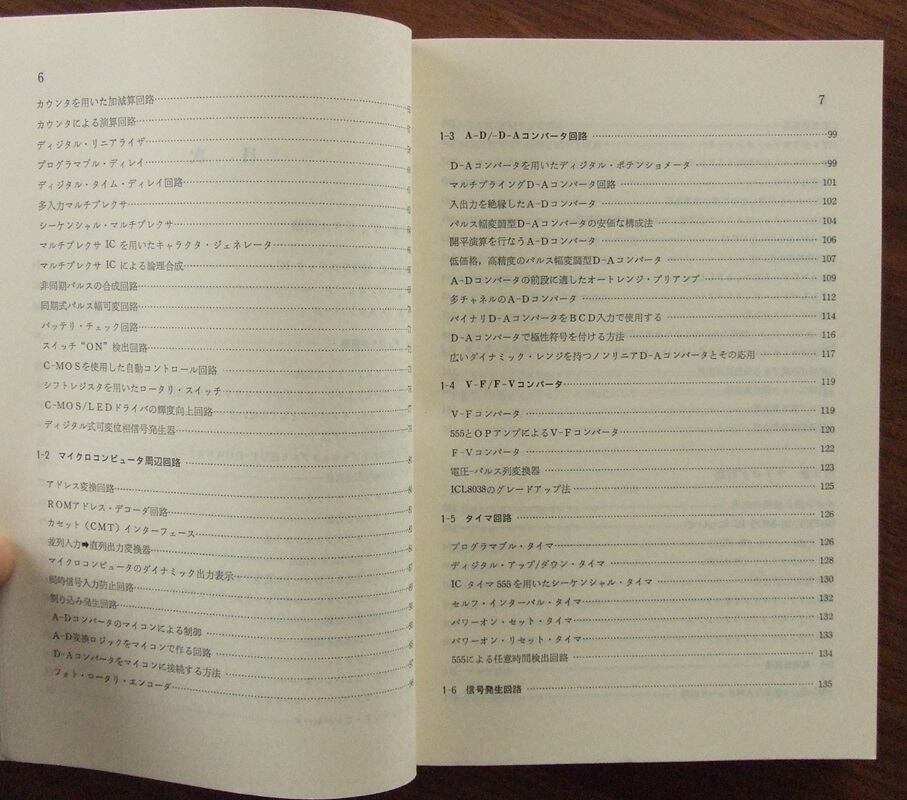 6
カウンタを用いた加減算回路
カウンタによる演算回路
ディジタル・リニアライザ
プログラマブル・ディレイ
ディジタル・タイム・ディレイ回路
多入力マルチプレクサ
シーケンシャル・マルチプレクサ
マルチプレクサ IC を用いたキャラクタ・ジェネレータ
マルチプレクサ IC による論理合成
非同期パルスの合成回路
同期式パルス幅可変回路
バッテリ・チェック回路
スイッチ “ON” 検出回路
C-MOSを使用した自動コントロール回路
シフトレジスタを用いたロータリ・スイッチ
C-MOS/LEDドライバの輝度向上回路
ディジタル式可変位相信号発生器
1-2 マイクロコンピュータ周辺回路
アドレス変換回路
ROMアドレス・デコーダ回路
カセット（CMT）インターフェース
並列入力➡直列出力変換器
マイクロコンピュータのダイナミック出力表示
同時信号入力防止回路
割り込み発生回路
A-Dコンバータのマイコンによる制御
A-D変換ロジックをマイコンで作る回路
D-Aコンバータをマイコンに接続する方法
フォト・ロータリ・エンコーダ
7
1-3 A-D/-D-Aコンバータ回路 99
D-Aコンバータを用いたディジタル・ポテンショメータ 99
マルチプライングD-Aコンバータ回路 101
入出力を絶縁したA-Dコンバータ 102
パルス幅変調型D-Aコンバータの安価な構成法 104
開平演算を行なうA-Dコンバータ 106
低価格，高精度のパルス幅変調型D-Aコンバータ 107
A-Dコンバータの前段に適したオートレンジ・プリアンプ 109
多チャネルのA-Dコンバータ 112
バイナリD-AコンバータをBCD入力で使用する 114
D-Aコンバータで極性符号を付ける方法 116
広いダイナミック・レンジを持つノンリニアD-Aコンバータとその応用 117
1-4 V-F/F-Vコンバータ 119
V-Fコンバータ 119
555とOPアンプによるV-Fコンバータ 120
F-Vコンバータ 122
電圧-パルス列変換器 123
ICL8038のグレードアップ法 125
1-5 タイマ回路 126
プログラマブル・タイマ 126
ディジタル・アップ/ダウン・タイマ 128
IC タイマ 555 を用いたシーケンシャル・タイマ 130
セルフ・インターバル・タイマ 132
パワーオン・セット・タイマ 132
パワーオン・リセット・タイマ 133
555による任意時間検出回路 134
1-6 信号発生回路 135